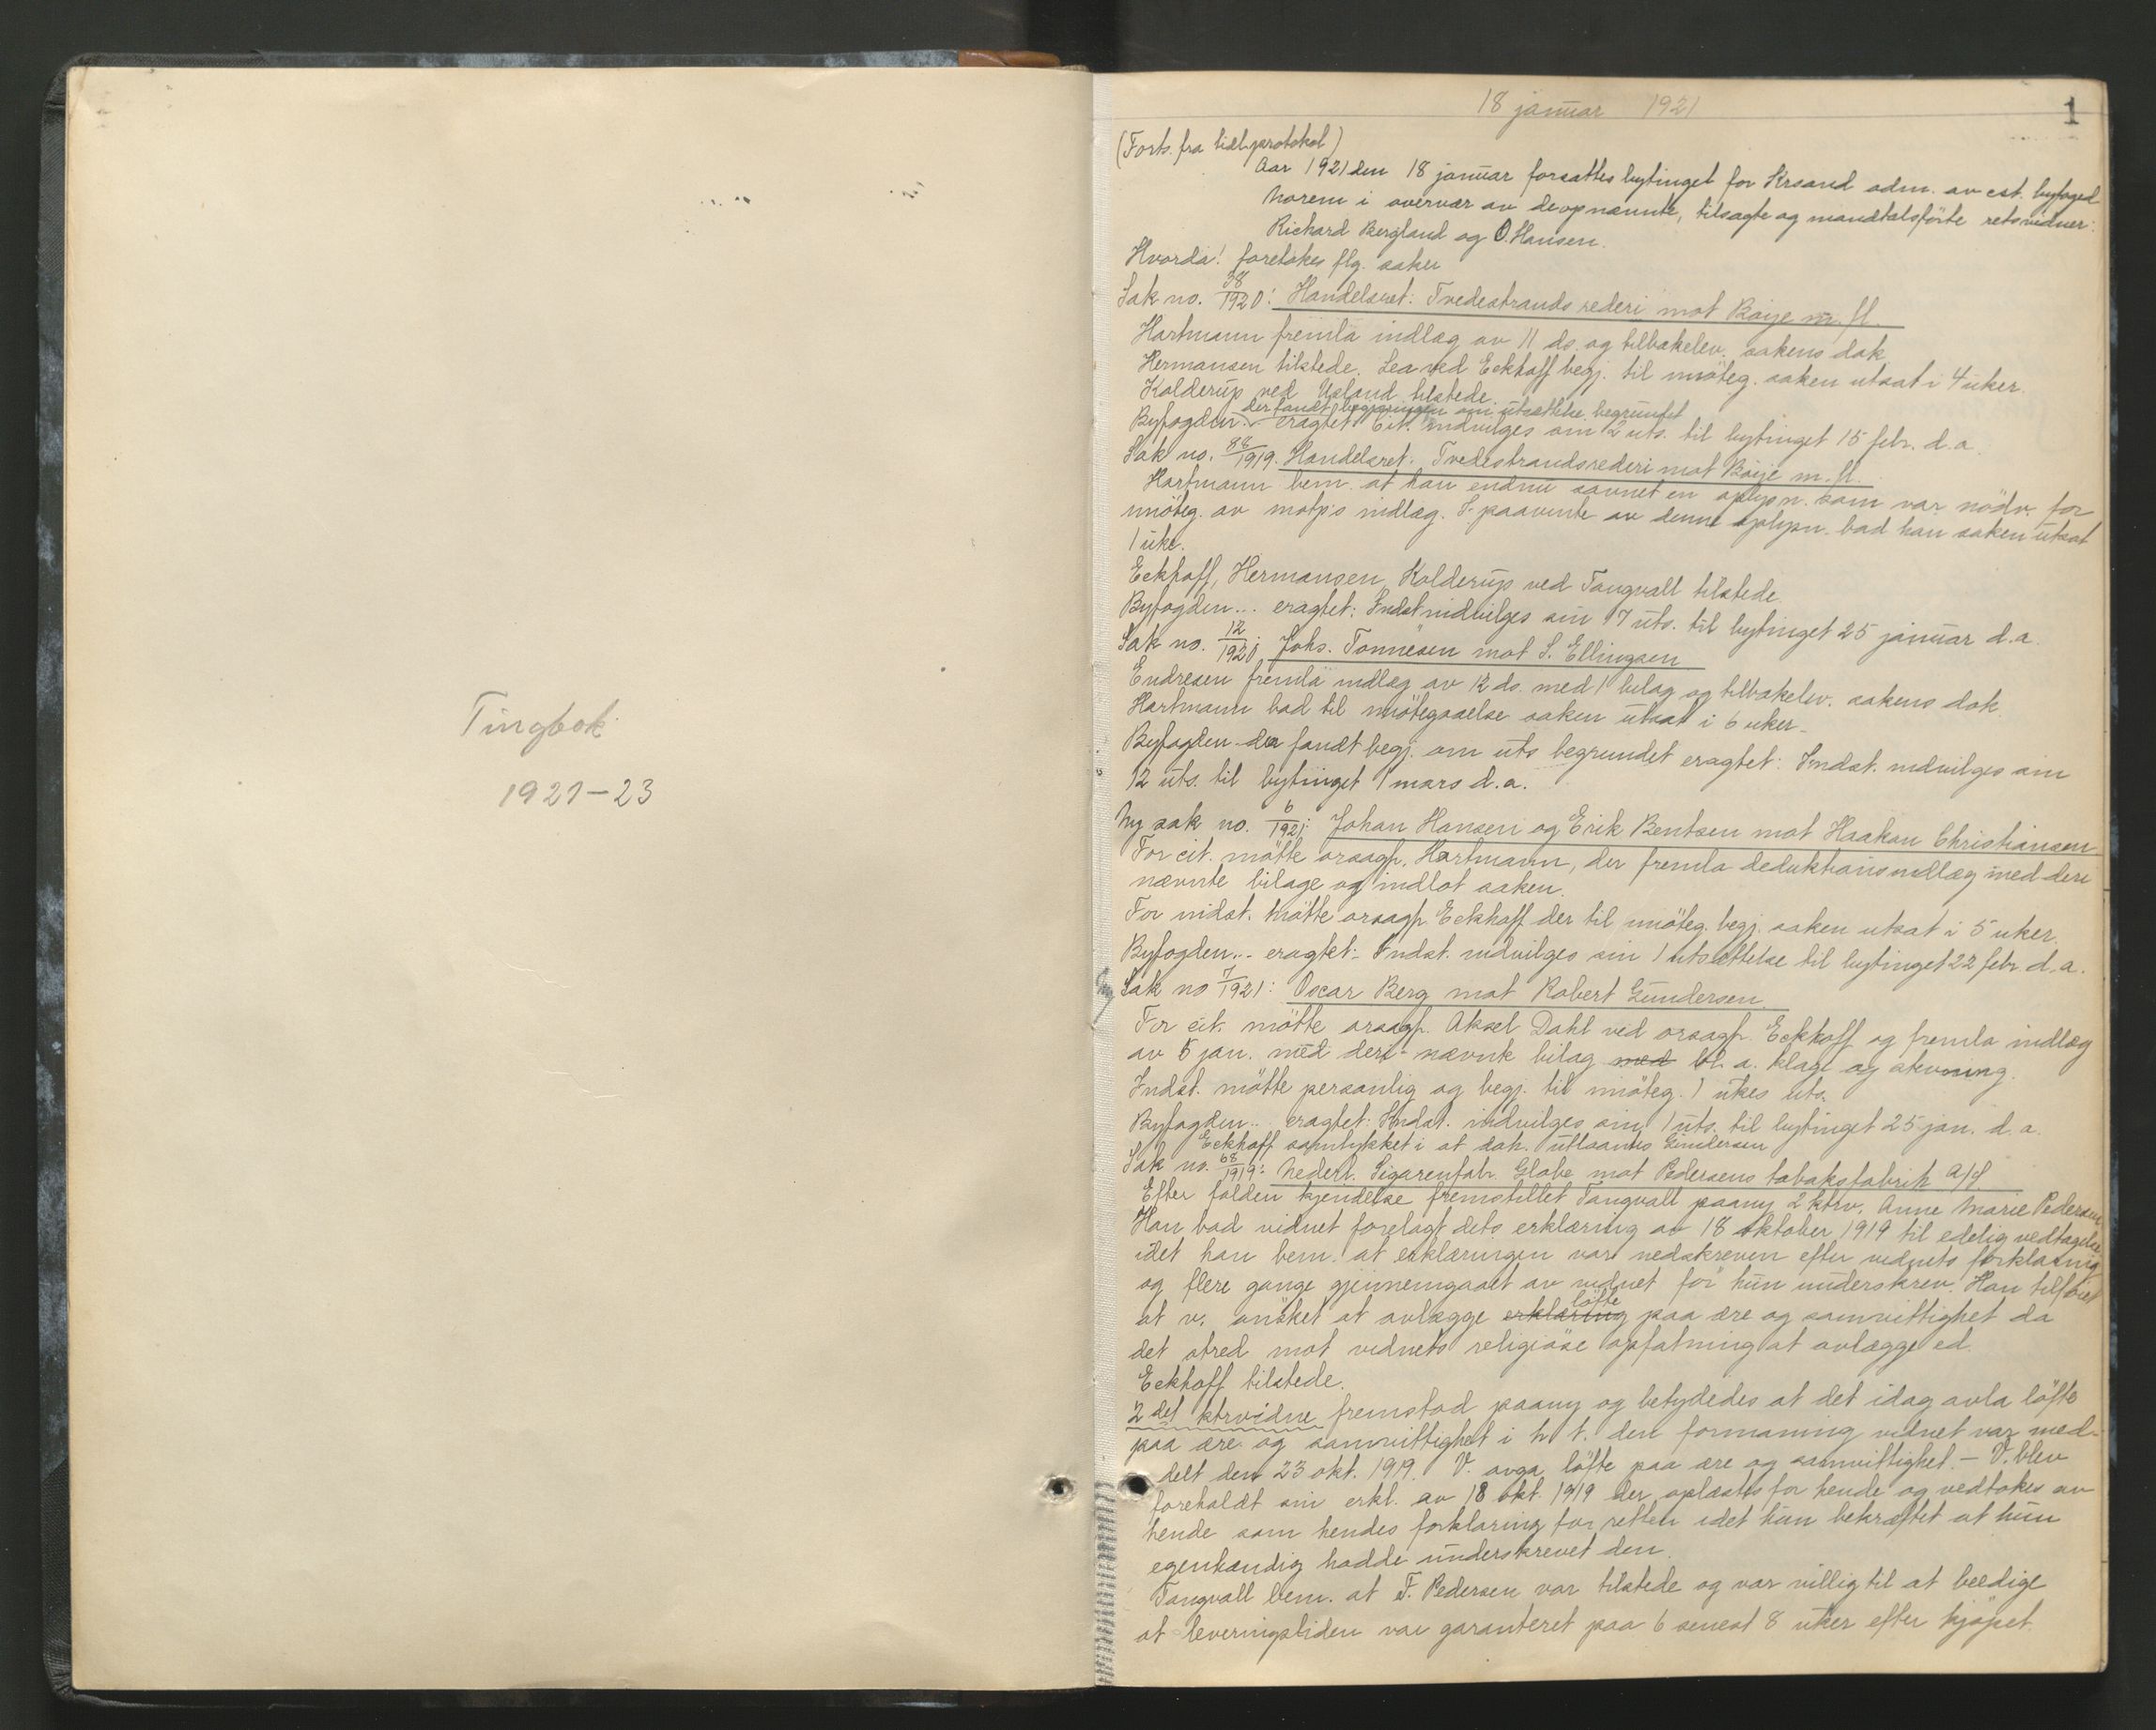 Tingbok
1921-23
18 januar 1921
1
(Forts. fra tidl. protokol)
Aar 1921 den 18 januar forsattes bytinget for Krsand adm. av cst. byfoged
Norem i overvær av de opnævnte, tilsagte og mandtalsförte retsvidner:
Richard Bergland og O. Hansen.
Hvorda! foretokes flg. saker
Sak no. 38/1920: Handelsret: Tvedestrands rederi mot Böije m. fl.
Hartmann fremla indlæg av 11 ds. og tilbakelev. sakens dok.
Hermansen tilstede. Lea ved Eckhoff begj. til imöteg. saken utsat i 4 uker.
Kolderup ved Usland tilstede.
der fandt begjæringen om utsættelse begrundet
Byfogden eragtet: Cit. indvilges sin 2 uts. til bytinget 15 febr. d.a.
Sak no. 88/1919. Handelsret: Tvedestrands rederi mot Böije m. fl.
Hartmann bem. at han endnu savnet en oplysn. som var nödv. for
imöteg. av motp's indlæg. I paavente av denne oplysn. bad han saken utsat
1 uke.
Eckhoff, Hermansen, Kolderup ved Tangvall tilstede.
Byfogden... eragtet: Indst indvilges sin 17 uts. til bytinget 25 januar d.a.
Sak no. 12/1920; Johs. Tönnesen mot S. Ellingsen
Endresen fremla indlæg av 12 ds. med 1 bilag og tilbakelev. sakens dok
Hartmann bad til imötegaaelse saken utsat i 6 uker.
Byfogden der fandt begj. om uts begrundet eragtet: Indst. indvilges sin
12 uts. til bytinget 1 mars d.a.
Ny sak no. 6/1921: Johan Hansen og Erik Bentsen mot Haakon Christiansen
For cit. mötte orsagf. Hartmann, der fremla deduktionsindlæg med deri
nævnte bilage og indlot saken.
For indst. mötte orsagf. Eckhoff der til imöteg. begj. saken utsat i 5 uker.
Byfogden... eragtet: Indst. indvilges sin 1 utsættelse til bytinget 22 febr d.a.
Ny
Sak no 7/1921: Oscar Berg mot Robert Gundersen.
For cit. mötte orsagf. Aksel Dahl ved orsagf. Eckhoff og fremla indlæg
av 5 jan. med deri nævnte bilag med bl. a. klage og stevning.
Indst. mötte personlig og begj. til imöteg. 1 ukes uts.
Byfogden... eragtet: Indst. indvilges sin 1 uts. til bytinget 25 jan. d. a.
Eckhoff samtykket i at dok. utlaantes Gundersen
Sak no. 68/1919: Nederl. Sigarenfabr. Globe mot Pedersens tobaksfabrik A/S.
Efter falden kjendelse fremstillet Tangvall paany 2 ktrv. Anne Marie Pedersen.
Han bad vidnet forelagt dets erklæring av 18 oktober 1919 til edelig vedtagelse
idet han bem. at erklæringen var nedskreven efter vidnets forklaring
og flere gange gjennemgaaet av vidnet för hun underskrev. Han tilföiet
at v. önsket at avlægge erklæring löfte paa ære og samvittighet da
det stred mot vidnets religiöse opfatning at avlægge ed.
Eckhoff tilstede.
2 det ktrvidne fremstod paany og betydedes at det idag avla löfte
paa ære og samvittighet i h. t. den formaning vidnet var med-
delt den 23 okt. 1919. V. avga löfte paa ære og samvittighet. - V. blev
foreholdt sin erkl. av 18 okt. 1919 der oplæstes for hende og vedtokes av
hende som hendes forklaring for retten idet hun bekræftet at hun
egenhændig hadde underskrevet den.
Tangvall bem. at F. Pedersen var tilstede og var villig til at beedige
at leveringstiden var garanteret paa 6 senest 8 uker efter kjöpet.